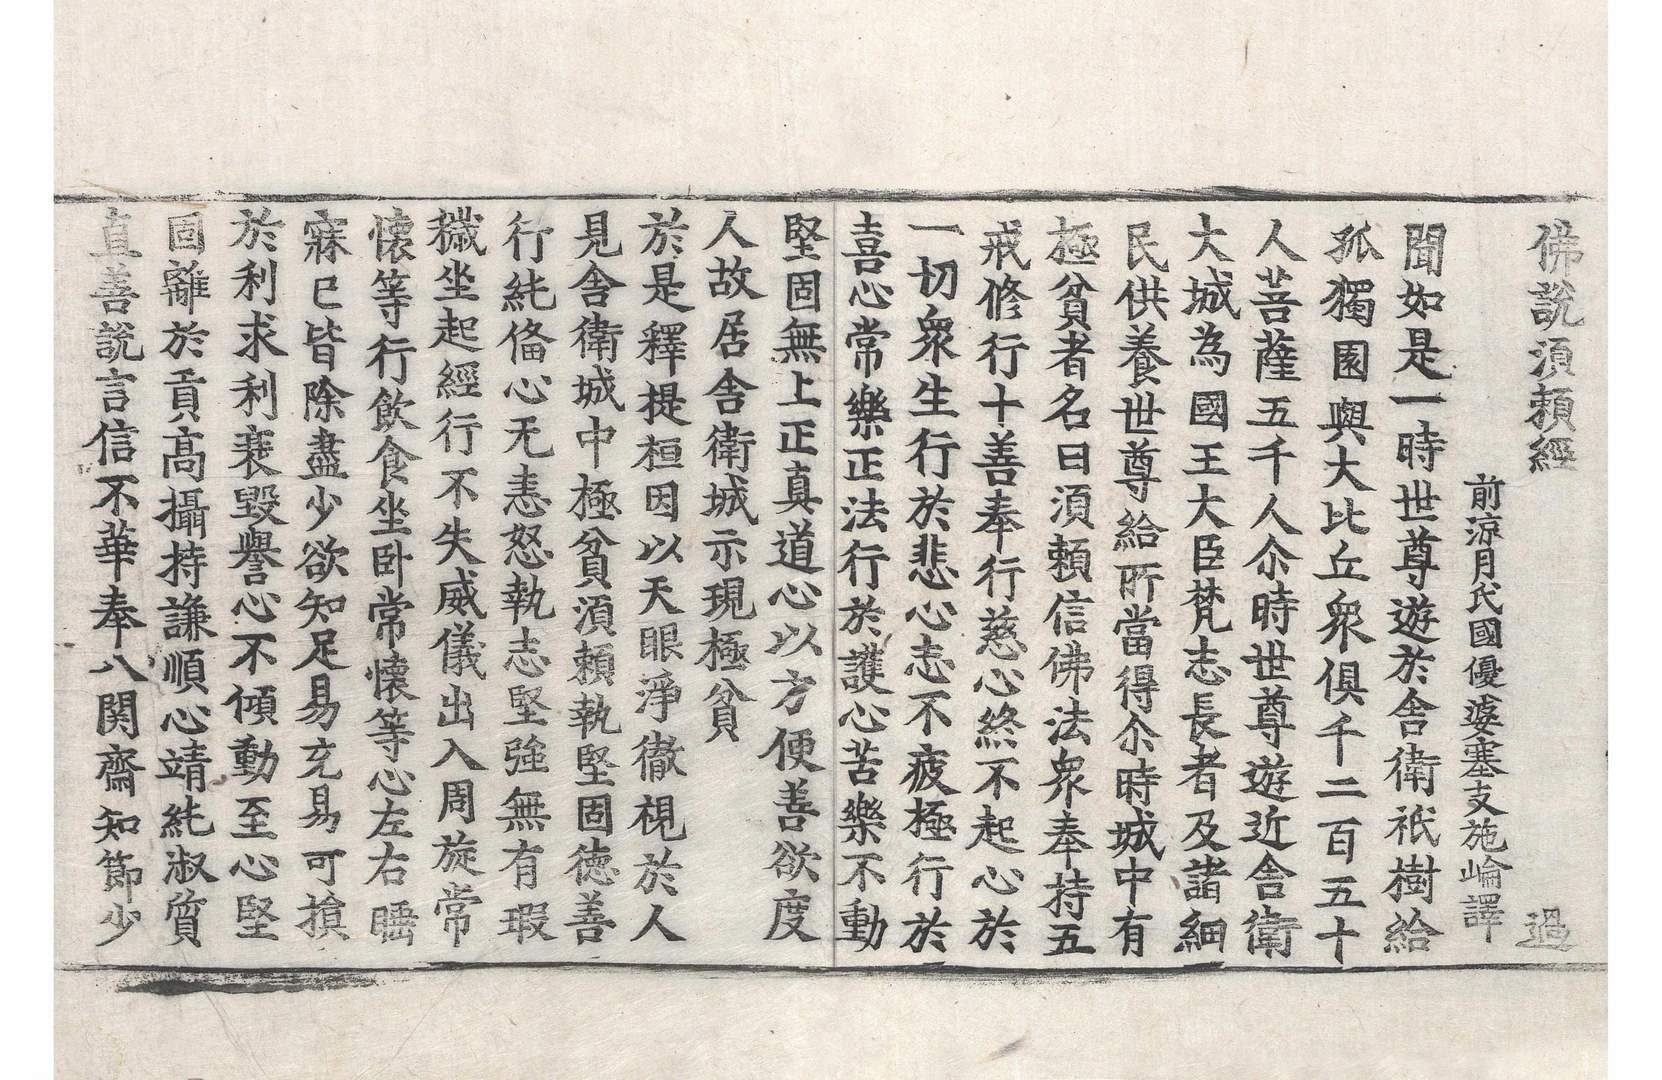 佛說須頼經 過
前涼月氏國優婆塞支施崘譯
聞如是一時世尊遊於舍衛祇樹給
孤獨園與大比丘衆俱千二百五十
人菩薩五千人尒時世尊遊近舍衛
大城為國王大臣梵志長者及諸細
民供養世尊給所當得尒時城中有
極貧者名曰須頼信佛法衆奉持五
戒修行十善奉行慈心終不起心於
一切衆生行於悲心志不疲極行於
喜心常樂正法行於護心苦樂不動
堅固無上正真道心以方便善欲度
人故居舍衛城示現極貧
於是釋提桓因以天眼淨徹視於人
見舍衛城中極貧須頼執堅固德善
行純俻心无恚怒執志堅強無有瑕
穢坐起經行不失威儀出入周旋常
懷等行飲食坐卧常懷等心左右睡
寐已皆除盡少欲知足易充易可摬
於利求利衰毀譽心不傾動至心堅
固離於貢高攝持謙順心靖純淑質
直善說言信不華奉八関齋知節少